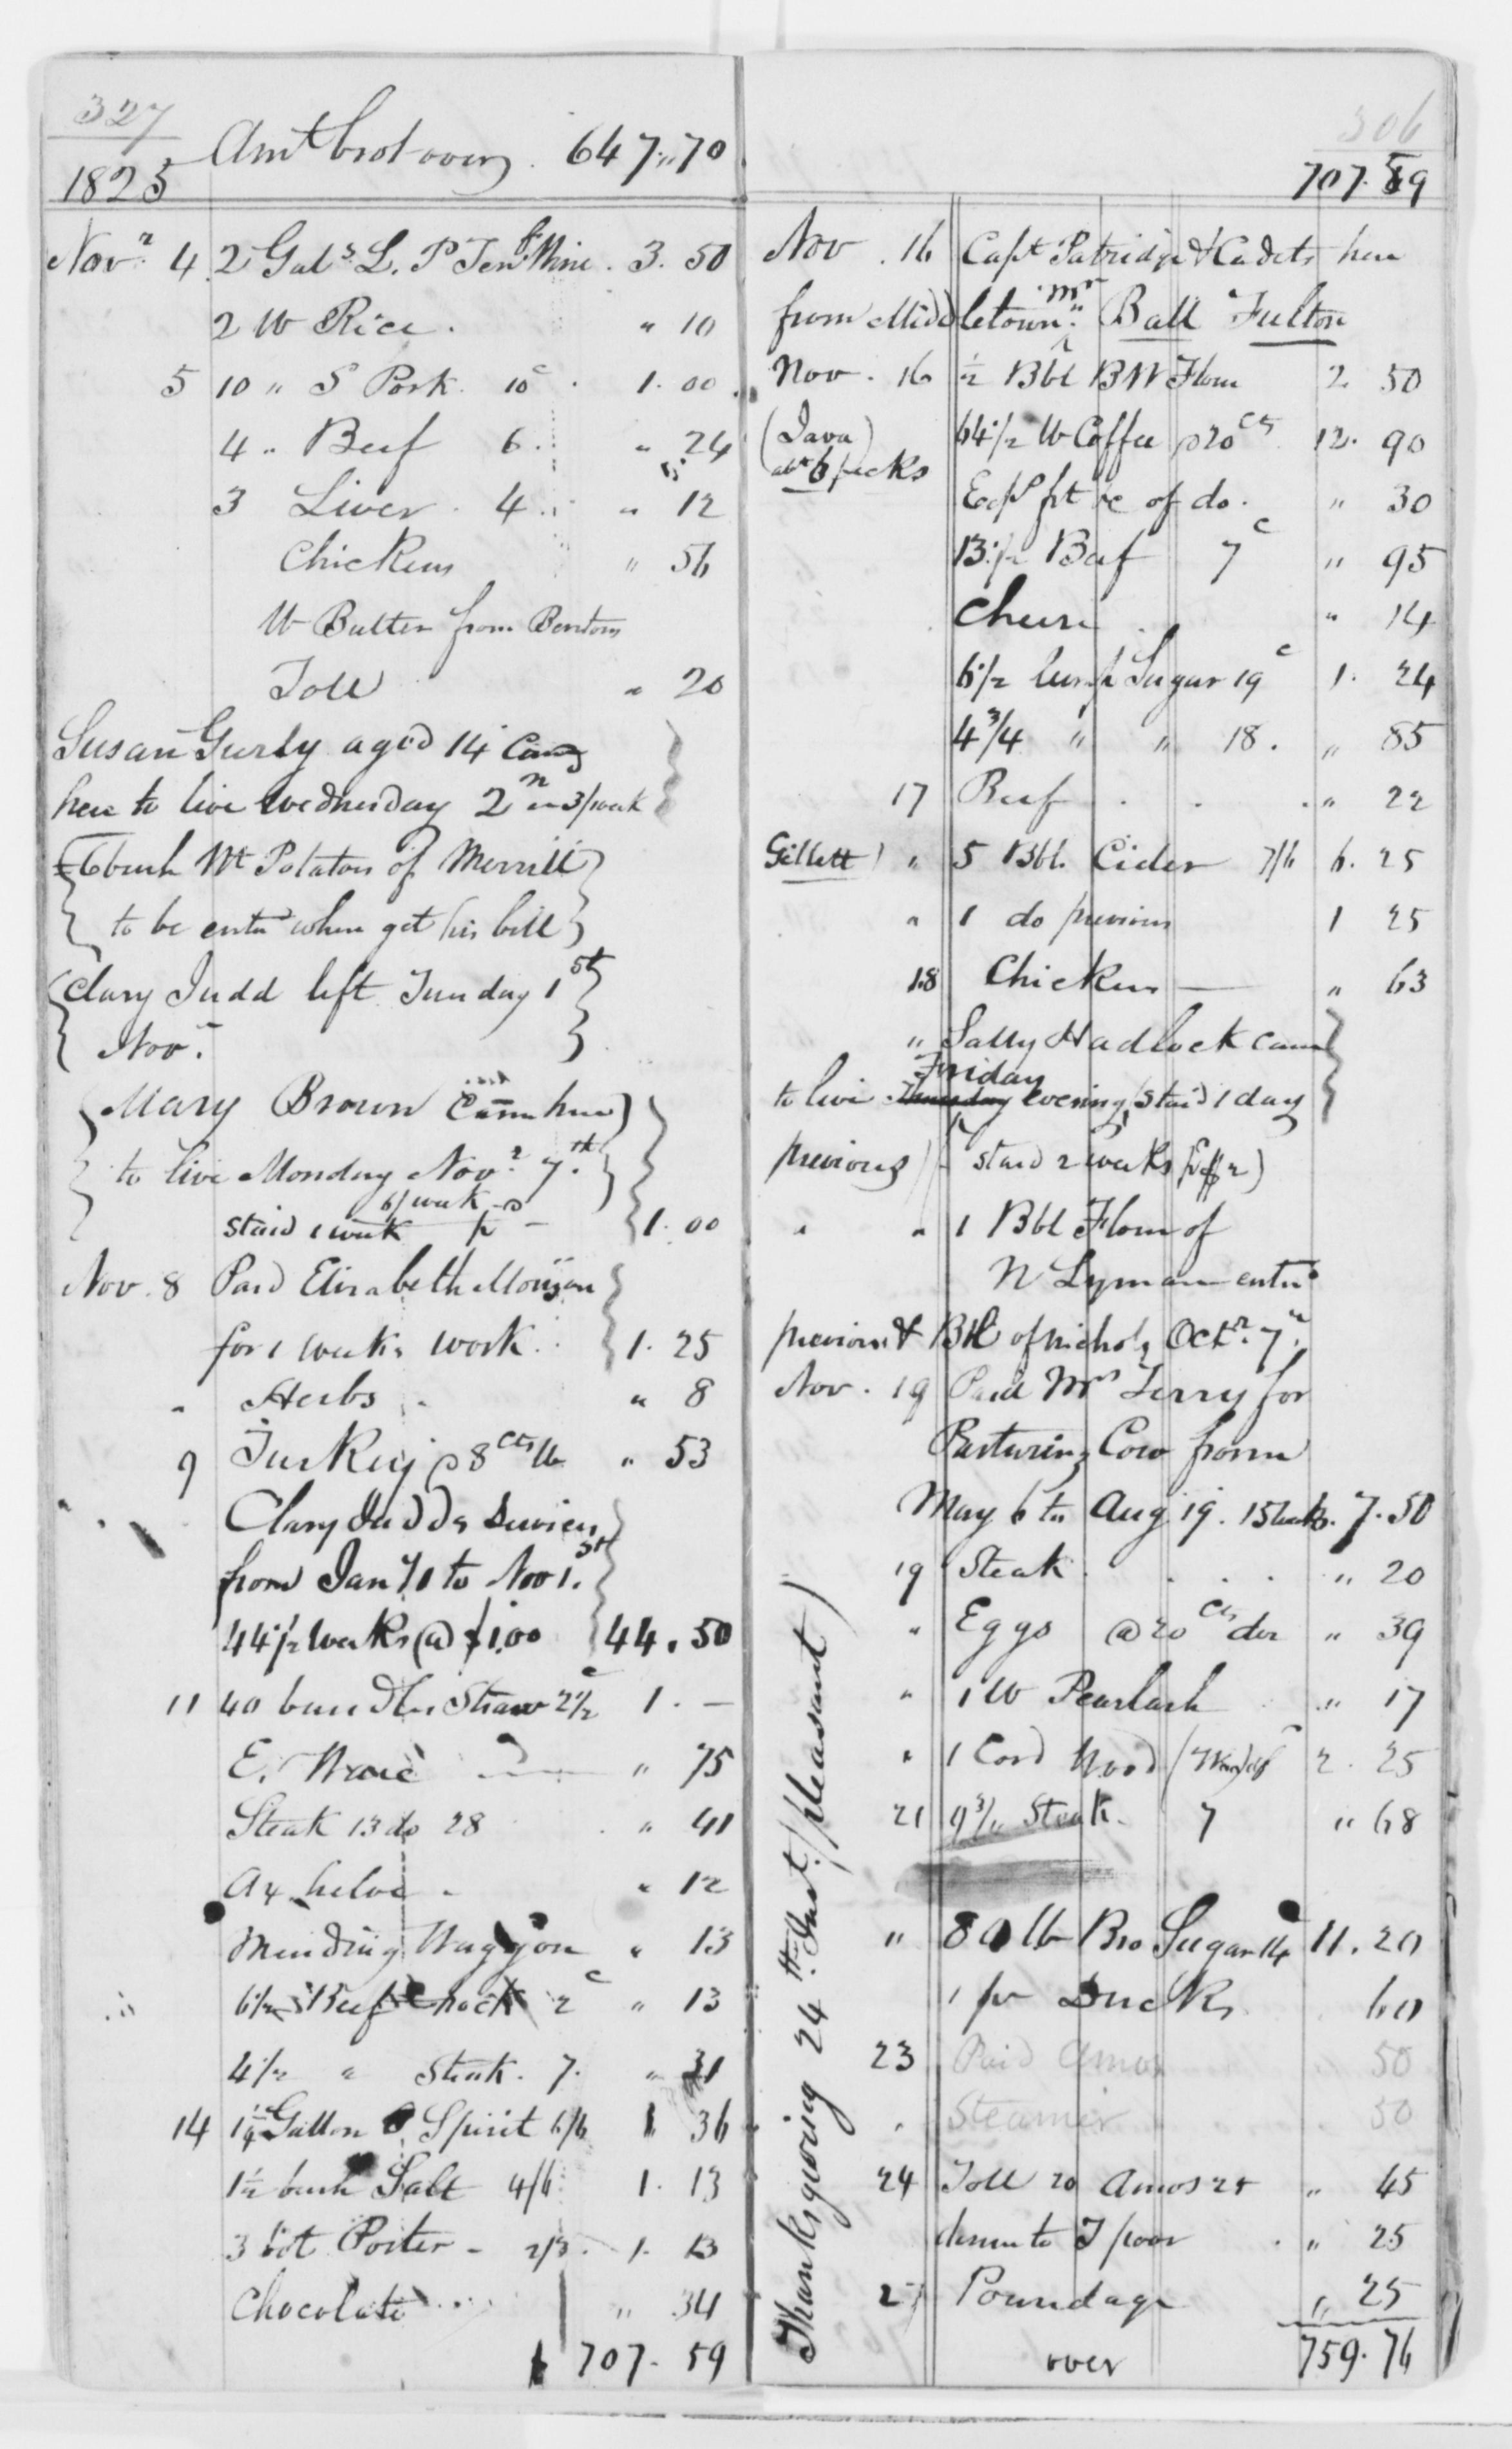 327
1825 Amt brot over 647 „ 70
Novr 4 2 Gals L. P Tenf Wine . 3. 50
2 lb Rice . " 10
5 10 " S Pork 10c . 1. 00
4 " Beef 6 . " 24
3 Liver . 4 . " 12
Chickens " 56
lb Butter from Bentons
Toll " 20
Susan Gurly aged 14 came
here to live Wednesday 2n 3/ week
6 bush Wt Potatoes of Merrill
to be entd when get his bill
Clary Judd left Tuesday 1st
Nov.
Mary Brown came here
to live Monday Novr 7th
6/ week
staid 1 week 1. 00
Nov. 8 Paid Elizabeth Morgan
for 1 weeks work . 1. 25
" Herbs . " 8
9 Turkey @ 8 cts lb " 53
Clary Judds services
from Jany 1 to Nov 1st
44 1/2 weeks @ $1.00 44. 50
11 40 bundles Straw 2 1/2c 1. —
E. " 75
Steak 13 do 28 " 41
Ax helve . " 12
Mending Waggon " 13
6 1/2 Beef Shock 2c " 13
4 1/2 " Steak . 7. " 31
14 1 1/4 Gallon Spirit 6/6 1 36
1 1/2 bush Salt 4/6 1. 13
3 bot Porter - 2/3 . 1. 13
Chocolate " 34
707. 59
306
707. 59
Nov . 16 Capt Patridge & Cadets here
from Middletown. Mr Ball Fulton
Nov . 16 1/2 Bbl BW Flour 2 50
(Java) 64 1/2 lb Coffee @ 20 cts 12. 90
abt 6 pecks
Exps frt &c of do . " 30
13 1/2 Beef 7c " 95
Cheese " 14
6 1/2 lump Sugar 19c 1. 24
4 3/4 " " 18 . " 85
17 Beef . . . " 22
Gillett) " 5 Bbl. Cider 7/6 6. 25
" 1 do previous 1 25
18 Chickens — " 63
" Sally Hadlock came
to live Friday evening, staid 1 day
previous staid 2 weeks
" " 1 Bbl Flour of
N Lyman entd
previous & Bbl of Nichols Octr 7th
Nov . 19 Paid Mrs Terry for
Pasturing Cow from
May 6 to Aug 19 . 15 weeks. 7. 50
19 Steak . . . " 20
" Eggs @ 20 cts doz " 39
" 1 lb Pearlash " 17
" 1 Cord Wood 2. 25
21 9 3/4 Steak . 7 " 68
" 80 lb Bro Sugar 14 11. 20
1 pr Ducks 60
23 Paid Amos 50
" Steamer 50
24 Toll 20 Amos 25 " 45
T poor . " 25
Poundage " 25
over 759. 76
Thanksgiving 24th Inst. (pleasant)